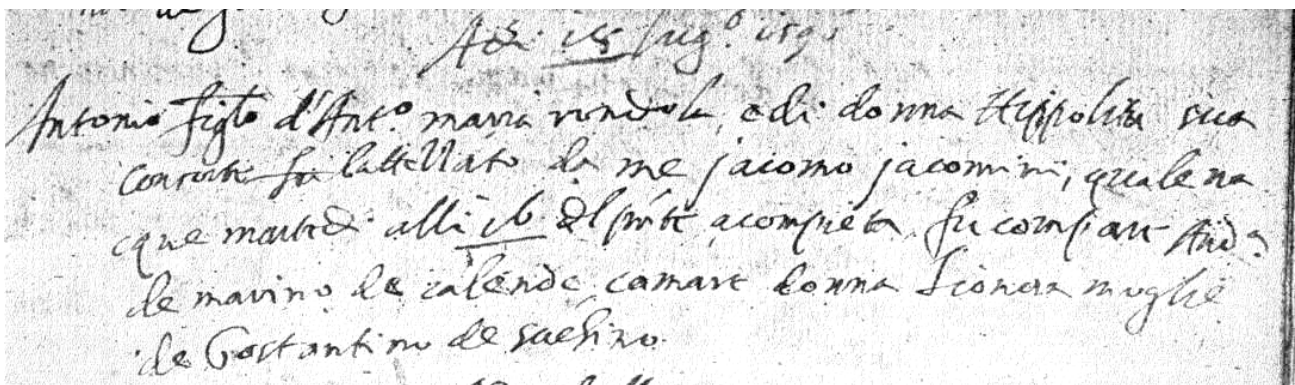 Adi 18 lug.º 159
Antonio figlo d'Ant.º maria rondola, e di donna Hippolita sua
consorte fu battezzato da me jacomo jacomini, quale na
cque martedi alli 16 del pnte a compieta. fu compare And.ª
de marino de calende, comare donna Lionora moglie
de Gostantino de